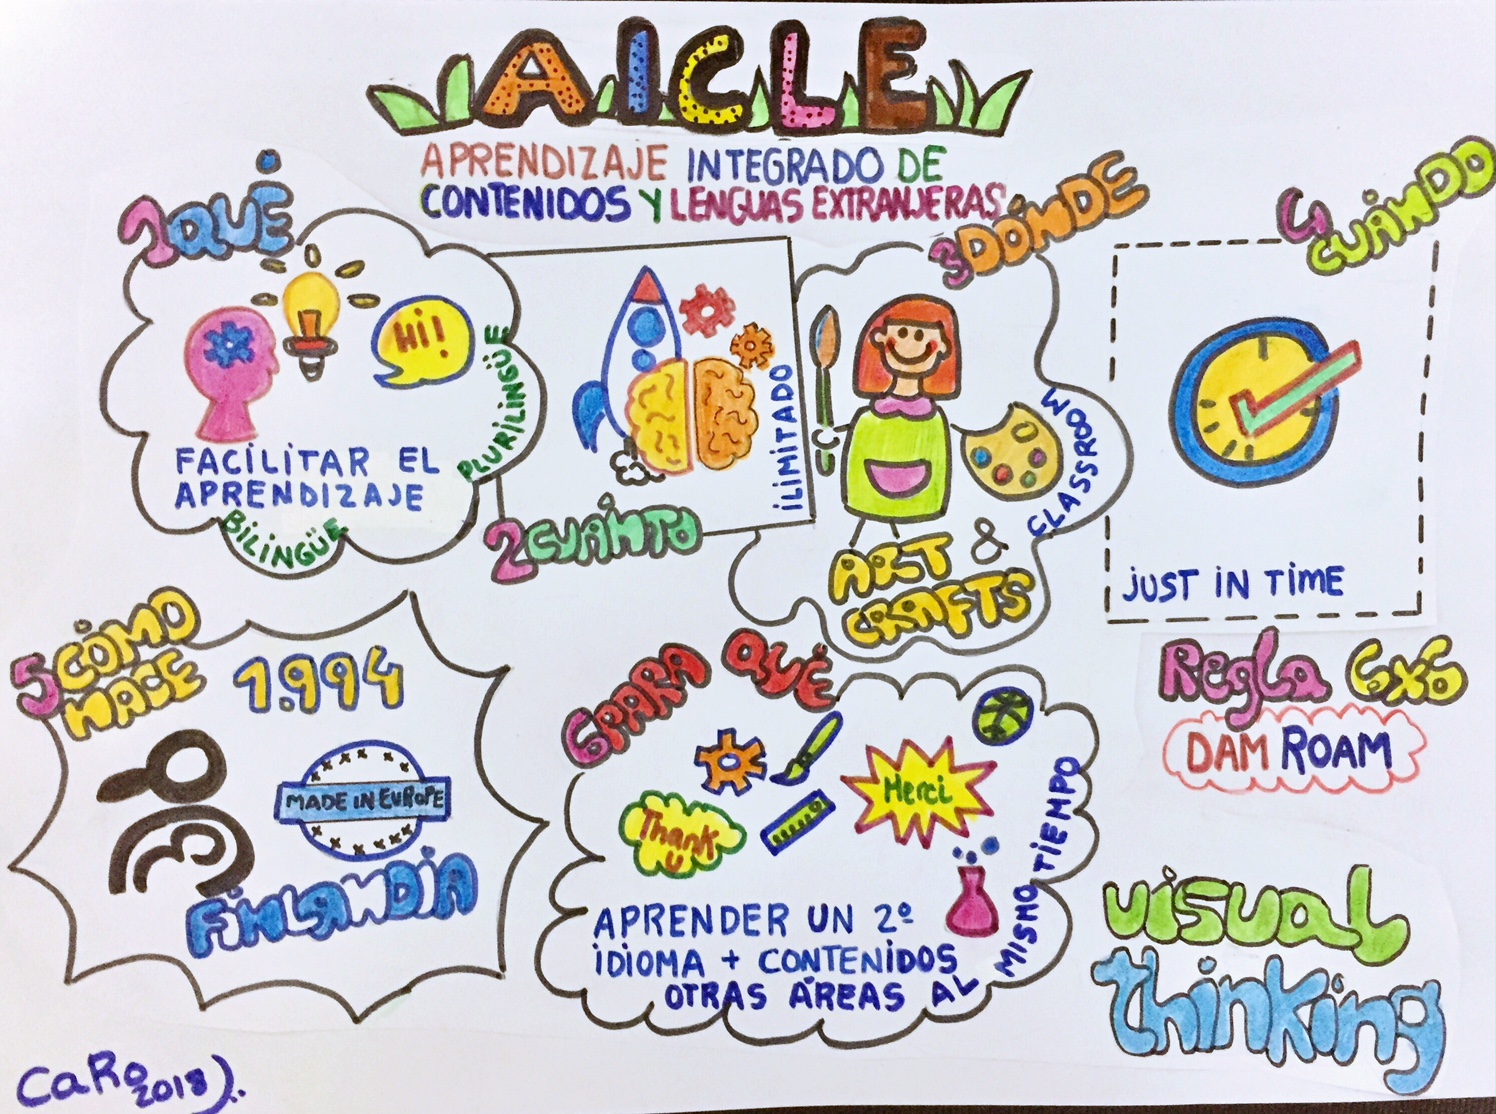 AICLE
APRENDIZAJE INTEGRADO DE
CONTENIDOS Y LENGUAS EXTRANJERAS
1 QUÉ
Hi!
FACILITAR EL
APRENDIZAJE
BILINGÜE
PLURILINGÜE
2 CUÁNTO
ILIMITADO
3 DÓNDE
CLASSROOM
ART &
CRAFTS
4 CUÁNDO
JUST IN TIME
5 CÓMO
NACE
1.994
MADE IN EUROPE
FINLANDIA
6 PARA QUÉ
Thank
U
Merci
APRENDER UN 2º
IDIOMA + CONTENIDOS
OTRAS ÁREAS AL
MISMO TIEMPO
Regla 6x6
DAM ROAM
Visual
thinking
CaRo 2018).